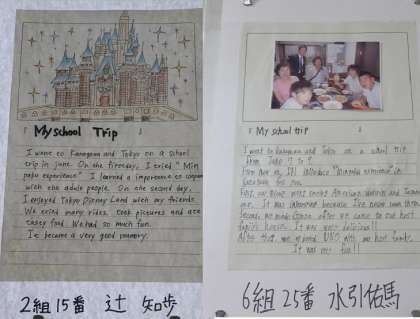 My school Trip
I went to Kanagawa and Tokyo on a school
trip in June. On the first day, I tried "Min
paku experience" I learned a importance to
with the adult people. On the second day,
I enjoyed Tokyo Disney Land with my friends.
We enjoyed many rides, took pictures and ate
tasty food. We had so much fun.
It became a very good memory.
2組15番 辻 知歩
My school trip
I went to Kanagawa and Tokyo on a school trip
from June 7 to 9.
First, our group met
American students and
one. It was interested because I've never
Second, we made dinner after we came to our host
family's house. It was very delicious!!
After that, we played UNO with our host family.
It was very fun!!
6組25番 水引佑馬